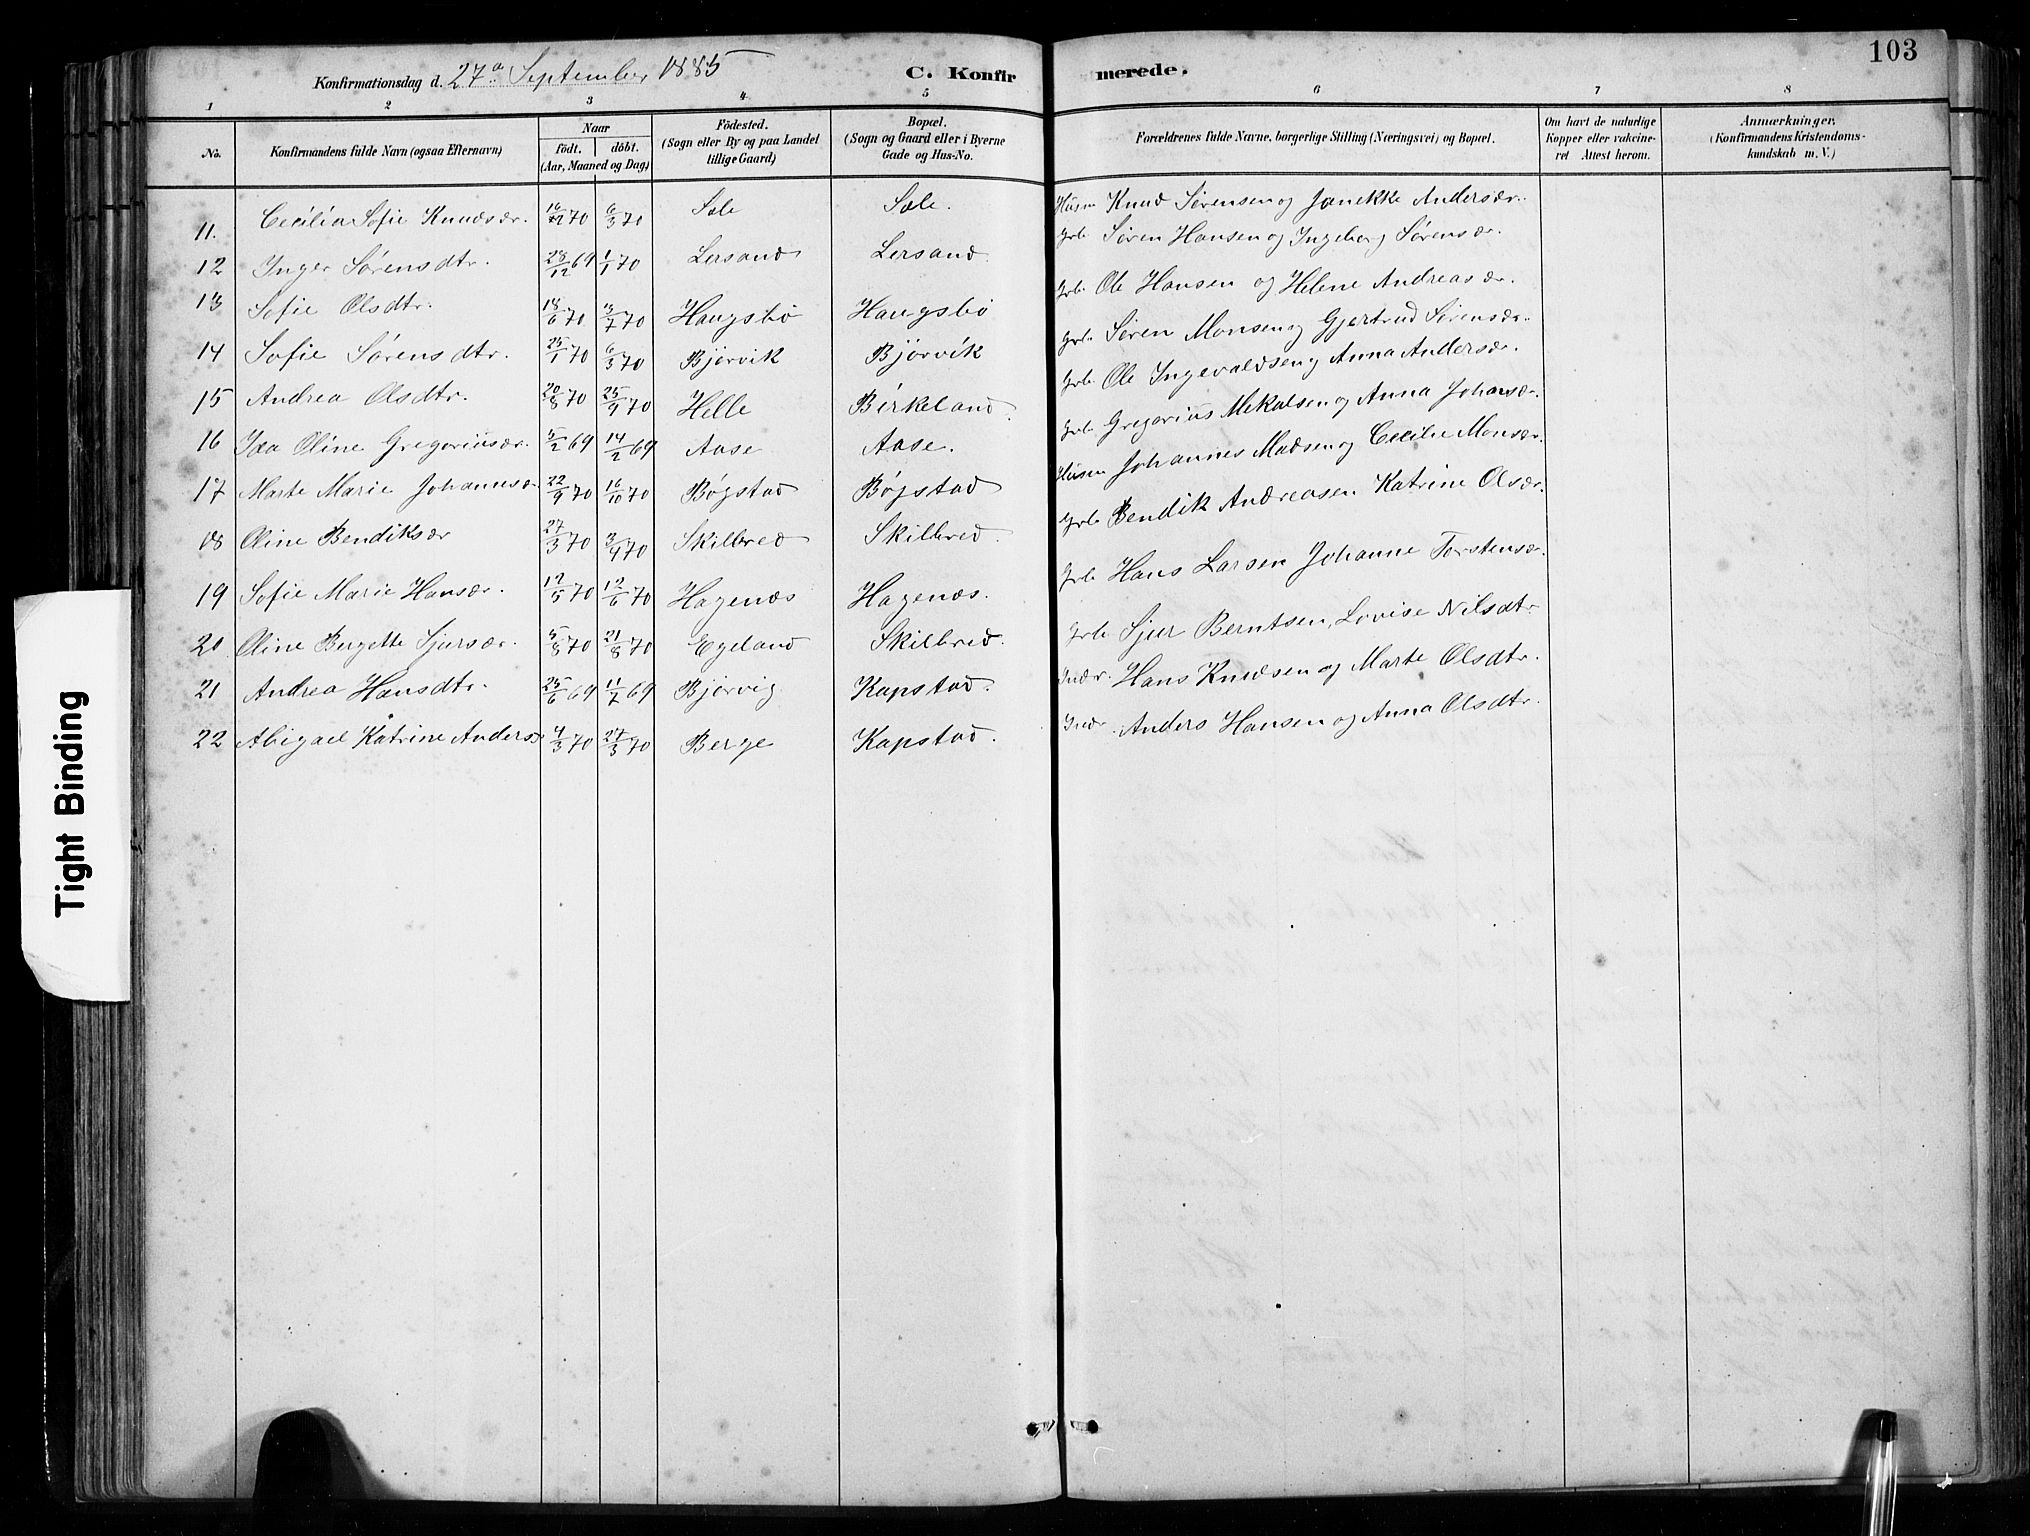 103
Konfirmationsdag d. 27de September 1885 C. Konfirmerede.
1 2 3 4 5 6 7 8
No. Konfirmandens fulde Navn (ogsaa Efternavn) Naar födt. döbt. (Aar, Maaned og Dag) Födested. (Sogn eller By og paa Landet tillige Gaard) Bopæl. (Sogn og Gaard eller i Byerne Gade og Hus-No. Forældrenes fulde Navne, borgerlige Stilling (Næringsvei) og Bopæl. Om havt de naturlige Kopper eller vakcineret Attest herom. Anmærkninger. (Konfirmandens Kristendomskundskab m. V.)
11. Cecilia Sofie Knudsdr. 70 6/3 70 Sæle Sæle. Husm Knud Sørensen og Janekke Andersdr.
12 Inger Sørensdtr. 28/12 69 1/1 70 Lersand Lersand Grb. Søren Hansen og Ingeberg Sørensdr.
13 Sofie Olsdtr. 18/6 70 3/7 70 Haugsbø Haugsbø Grb. Ole Hansen og Helene Andreasdr.
14 Sofie Sørensdtr. 25/1 70 6/3 70 Bjørvik Bjørvik Grb. Søren Monsen og Gjertrud Sørensdr.
15 Andrea Olsdtr. 20/8 70 25/9 70 Helle Birkeland. Grb Ole Ingevaldsen og Anna Andersdr.
16 Ida Oline Gregoriusdr. 5/2 69 14/2 69 Aase Aase. Grb Gregorius Mikalsen og Anna Johansdr.
17 Marte Marie Johannesdr 22/9 70 16/10 70 Bøgstad Bøgstad Husm Johannes Madsen og Cecilie Monsdr.
18 Oline Bendiksdr 27/3 70 3/4 70 Skilbred Skilbred. Grb Bendik Andreasen Katrine Olsdr.
19 Sofie Marie Hansdr. 12/5 70 12/6 70 Hagenæs Hagenæs. Grb Hans Larsen Johanne Torstensdr.
20 Oline Bergette Sjursdr. 5/8 70 21/8 70 Egeland Skilbred. Grb Sjur Berntsen, Lovise Nilsdtr
21 Andrea Hansdtr. 25/6 69 11/7 69 Bjørvig Kapstad. Inder. Hans Knudsen og Marte Olsdtr.
22 Abigael Katrine Andersd 4/3 70 27/3 70 Berge Kapstad. Inder. Anders Hansen og Anna Olsdtr.
Tight Binding